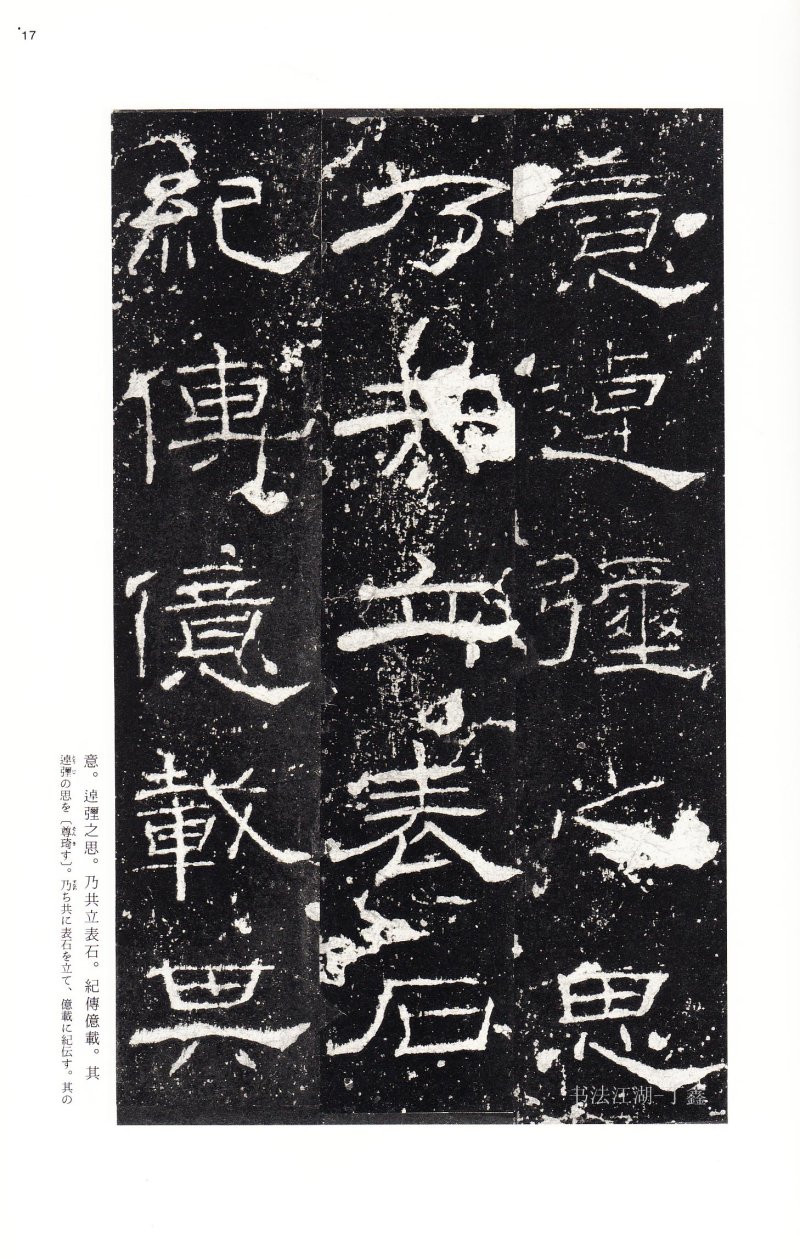 17
意逴彌之思
乃共立表石
紀傳億載其
意。逴彌之思。乃共立表石。紀傳億載。其
逴彌の思を〔尊琦す〕。乃ち共に表石を立て、億載に紀伝す。其の
书法江湖-丁鑫